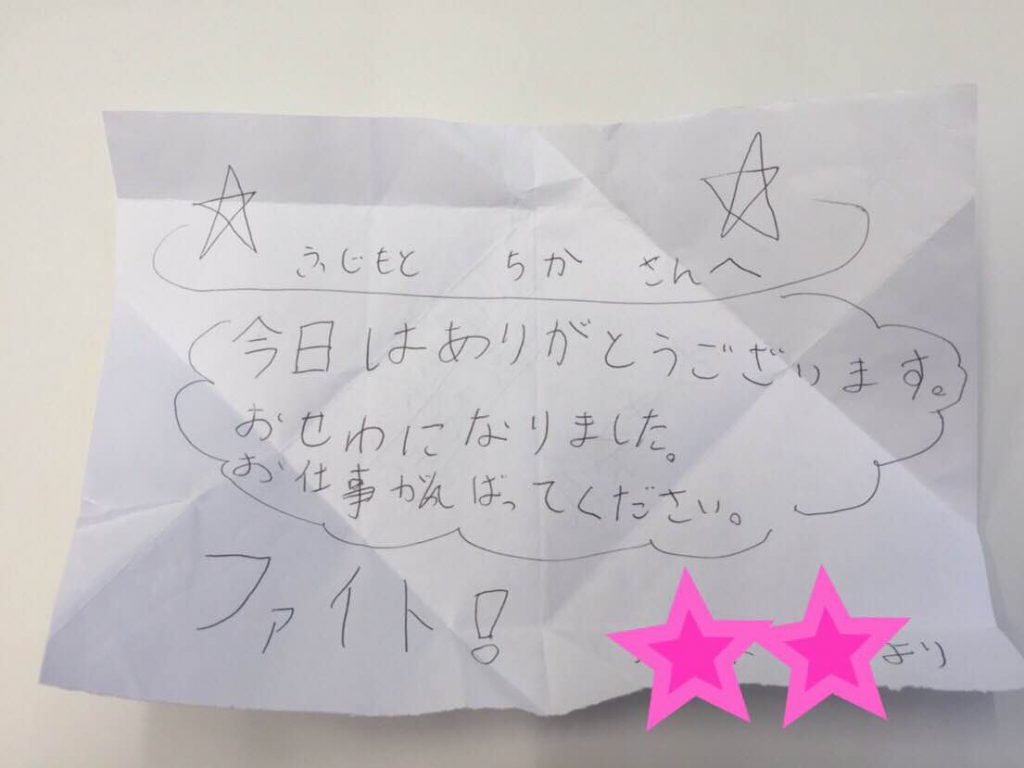 ふじもと ちか さんへ
今日はありがとうございます。
おせわになりました。
お仕事がんばってください。
ファイト!
より